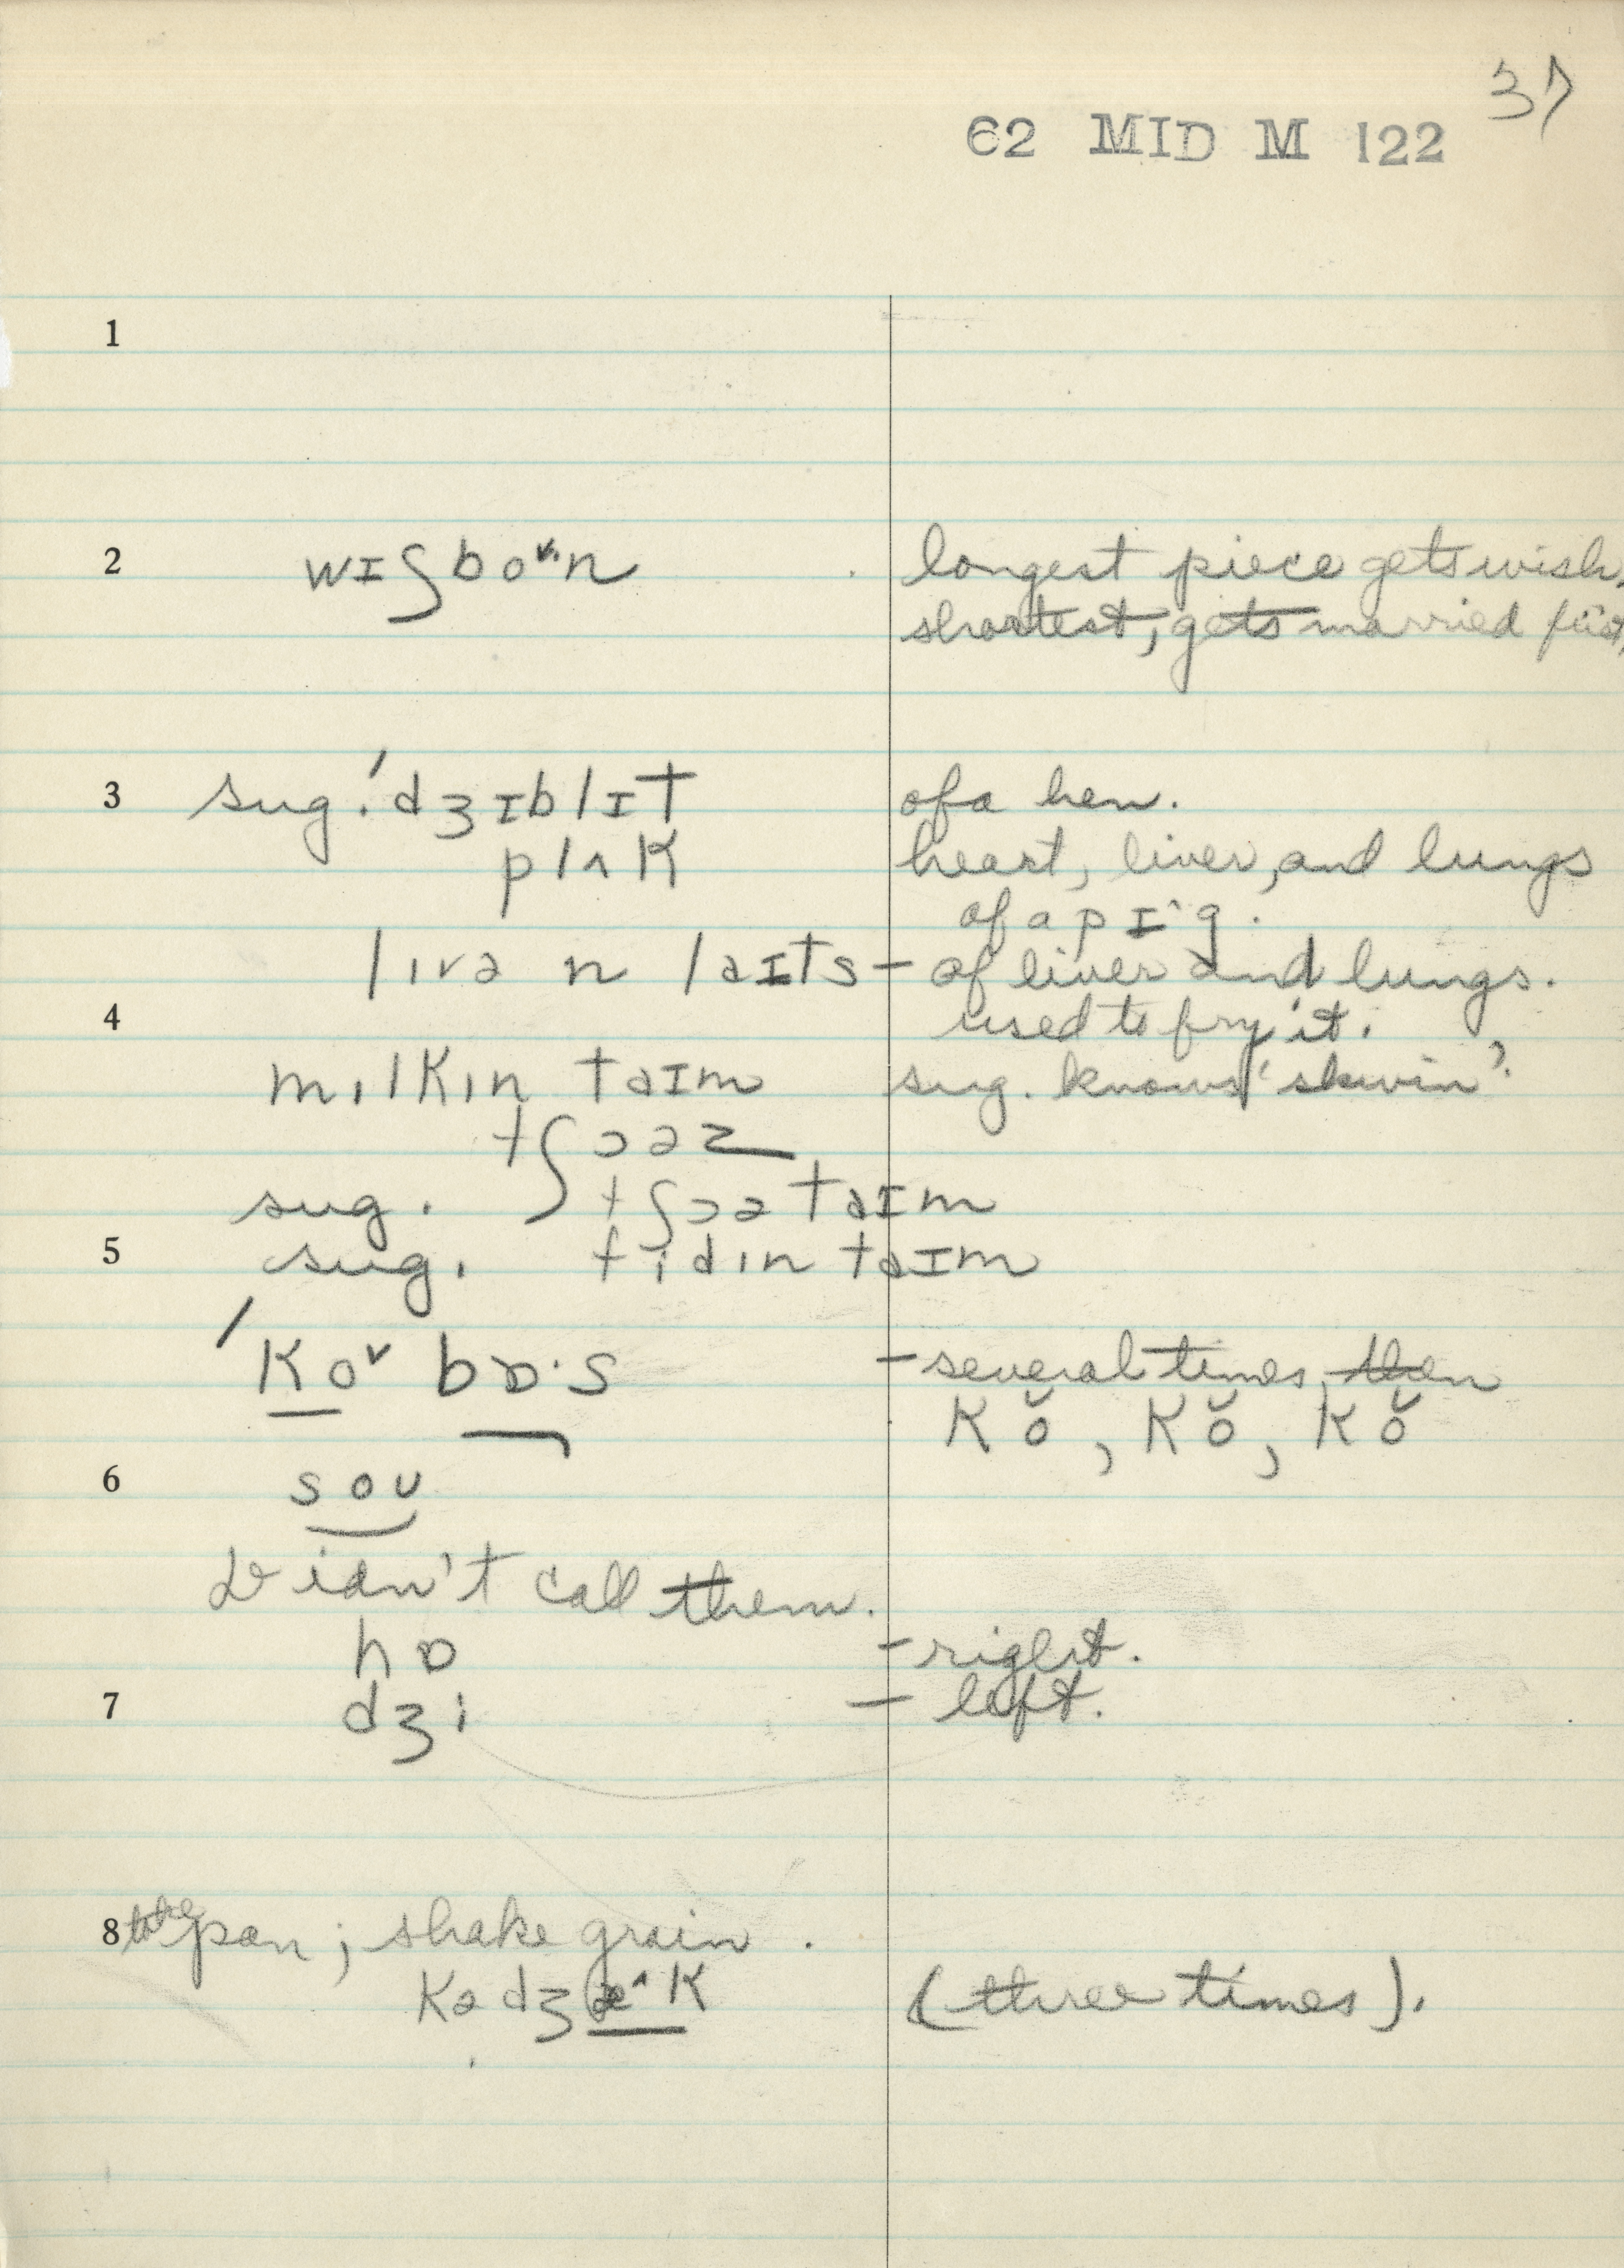 37
62 MID M 122
1
2 wɪʃboᴜn longest piece gets wish,
shortest, gets married first,
3 sug. 'dʒɪblɪt of a hen.
plʌk heart, liver, and lungs
of a pɪ^g.
lɪvə n laɪts – of liver and lungs.
4 used to fry it.
mɪlkɪn taɪm sug. knows 'skwin'?
tʃɔəz
sug. tʃɔə taɪm
5 sug. fidɪn taɪm
'Koᵛ bɒ·s – several times, then
Kŏ, Kŏ, Kŏ
6 soʊ
Didn't call them.
hɒ – right.
7 dʒi – left.
8 to the pan; shake grain.
Kədʒæ^K (three times).